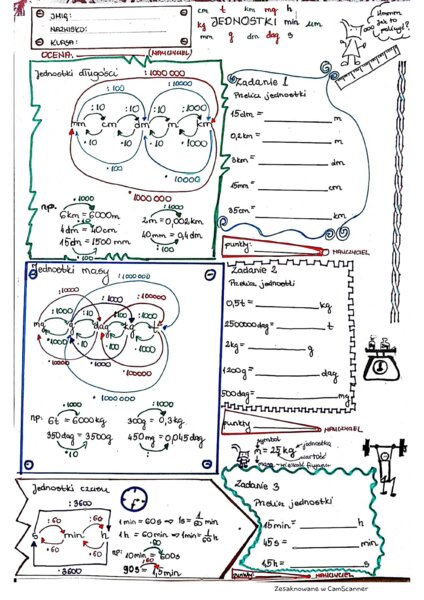 IMIĘ:
NAZWISKO:
KLASA:
OCENA: (NAUCZYCIEL)
cm t km mg h
kg JEDNOSTKI min µm
mm g dm dag s
Hmmm Jak to policzyć?
Jednostki długości
:1000 000
:100 :1000
:10 :10 :1000
mm cm dm m km
·10 ·10 ·10 ·1000
·100 ·10000
·1000 000
np:
·1000
6km = 6000m
4dm = 40cm
15dm = 1500mm
·100
:1000
2m = 0,002km
40mm = 0,4dm
:100
Zadanie 1
Przelicz jednostki
15dm = m
0,2km = m
3km = dm
15mm = cm
35cm = km
punkty: NAUCZYCIEL
Jednostki masy
:1000000
:1000 :1000 :100000
mg g dag kg t
·1000 ·10 ·100 ·1000
·10000 ·100000
·1000000
np:
·1000
6t = 6000kg
350dag = 3500g
·10
:1000
300g = 0,3kg
450mg = 0,045dag
:10000
Zadanie 2
Przelicz jednostki
0,5t = kg
2500000dag = t
2kg = g
1200g = dag
500dag = mg
punkty NAUCZYCIEL
symbol
jednostka
m = 25 kg
wartość
masa - wielkość fizyczna
Jednostki czasu
:3600
:60 :60
s min h
·60 ·60
·3600
1 min = 60s → 1s = 1/60 min
1h = 60 min → 1min = 1/60 h
np:
·60
10min = 600s
90s = 1,5min
:60
Zadanie 3
Przelicz jednostki
15min = h
45s = min
1,5h = s
punkty: NAUCZYCIEL
Zeskanowane w CamScanner